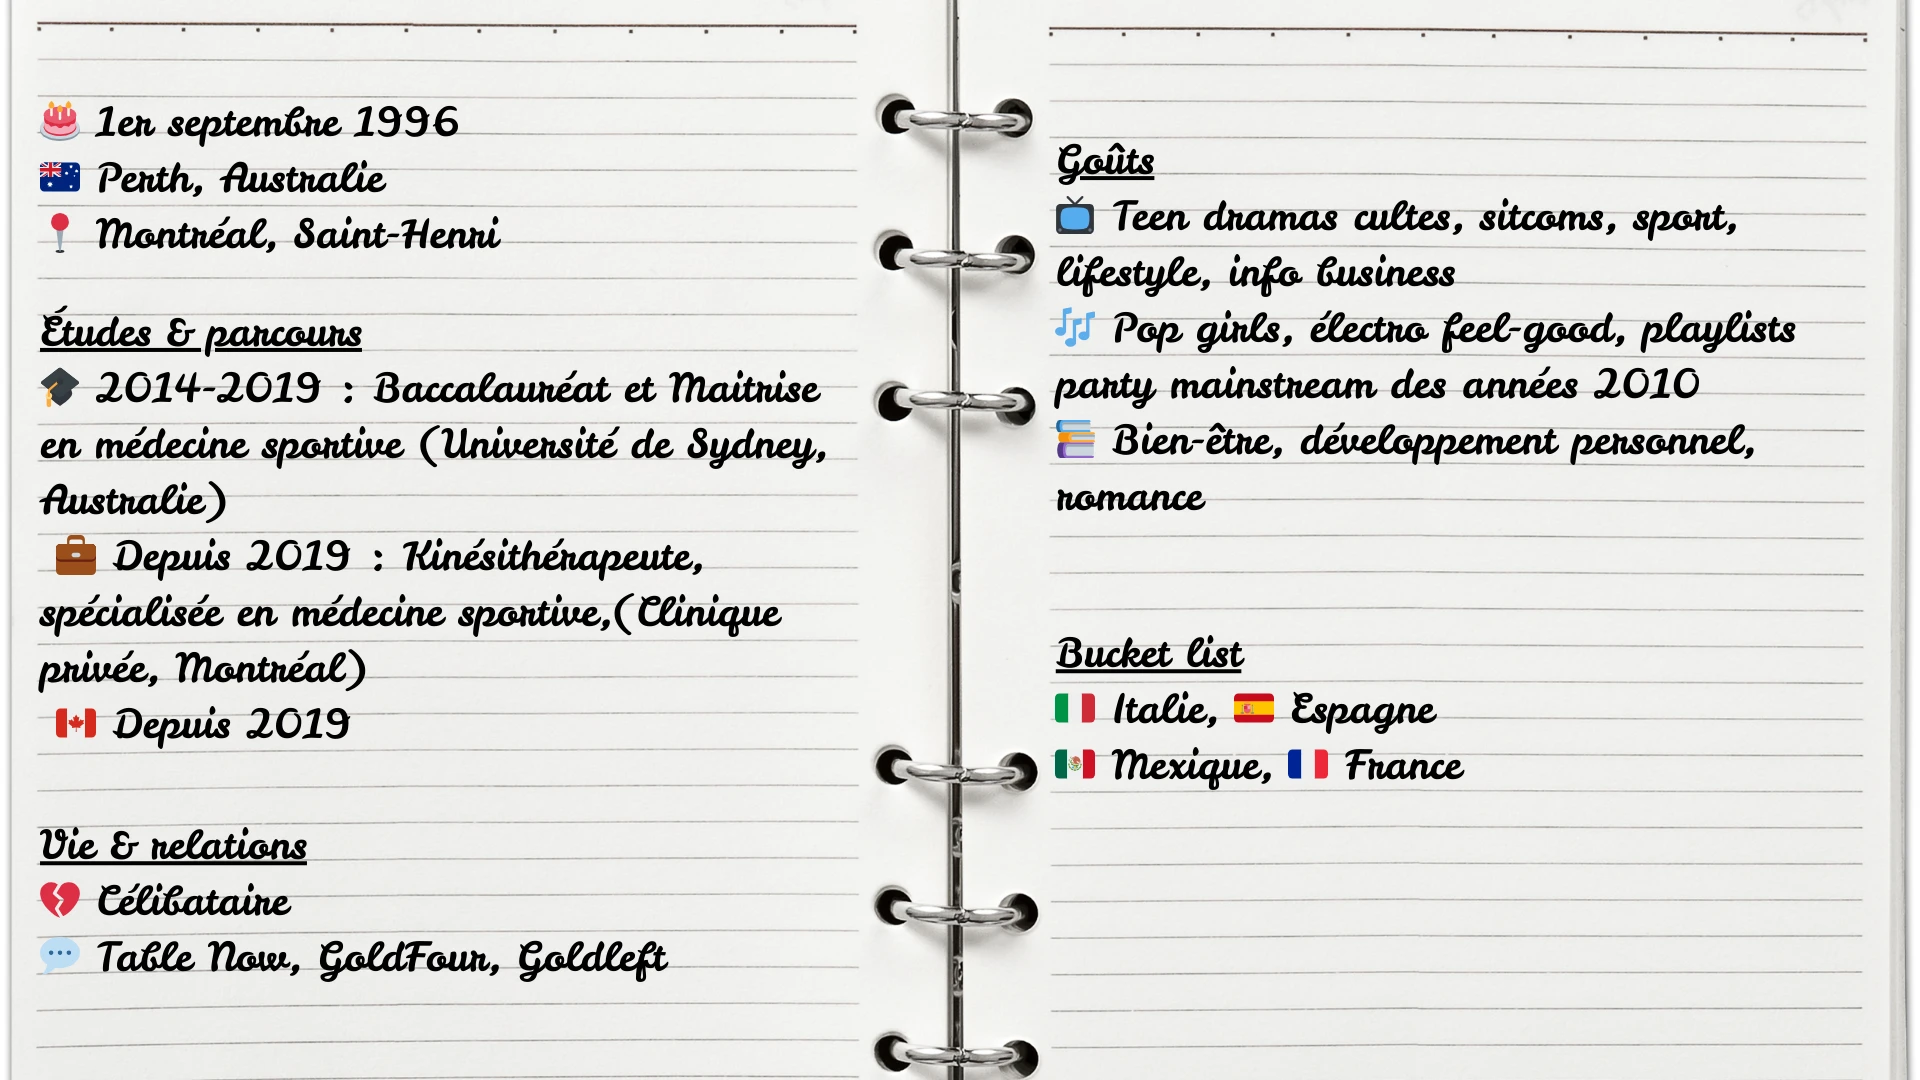 🎂 1er septembre 1996
🇦🇺 Perth, Australie
📍 Montréal, Saint-Henri
Études & parcours
🎓 2014-2019 : Baccalauréat et Maitrise
en médecine sportive (Université de Sydney,
Australie)
💼 Depuis 2019 : Kinésithérapeute,
spécialisée en médecine sportive,(Clinique
privée, Montréal)
🇨🇦 Depuis 2019
Vie & relations
💔 Célibataire
💬 Table Now, GoldFour, Goldleft
Goûts
📺 Teen dramas cultes, sitcoms, sport,
lifestyle, info business
🎶 Pop girls, électro feel-good, playlists
party mainstream des années 2010
📚 Bien-être, développement personnel,
romance
Bucket list
🇮🇹 Italie, 🇪🇸 Espagne
🇲🇽 Mexique, 🇫🇷 France